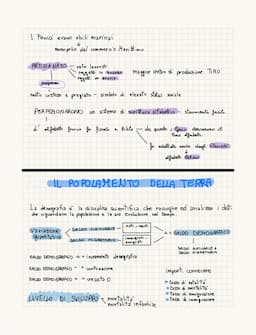 I Fenici erano abili marinai
monopolio del commercio Marittimo
ARTIGIANATO
vetro lavorato
oggetti in
oggetti in avorio
maggior centro di produzione TIRO
porpora
molto costoso e pregiato → simbolo di elevato status sociale
un sistema di scrittura alfabetica
L' alfabeto fenicio fu
da questo i Greci
fu adottato anche dagli Etruschi
alfabeto Latino
IL POPOLAMENTO DELLA TERRA
La demografia è la disciplina scientifica che raccoglie ed analizza i dati
che riguardano la popolazione e la sua evoluzione nel tempo.
VARIAZIONE QUANTITATIVA
SALDO NATURALE
nati - morti
SALDO MIGRATORIO
immigrati - emigrati
= SALDO DEMOGRAFICO
SALDO NATURALE +
SALDO MIGRATORIO
SALDO DEMOGRAFICO + = incremento demografico
SALDO DEMOGRAFICO - = contrazione
SALDO DEMOGRAFICO = crescita 0
import. conoscere
• tasso di natalità
• tasso di mortalità
• tasso di immigrazione
• tasso di emigrazione
LIVELLO DI SVILUPPO
mortalità
mortalità infantile